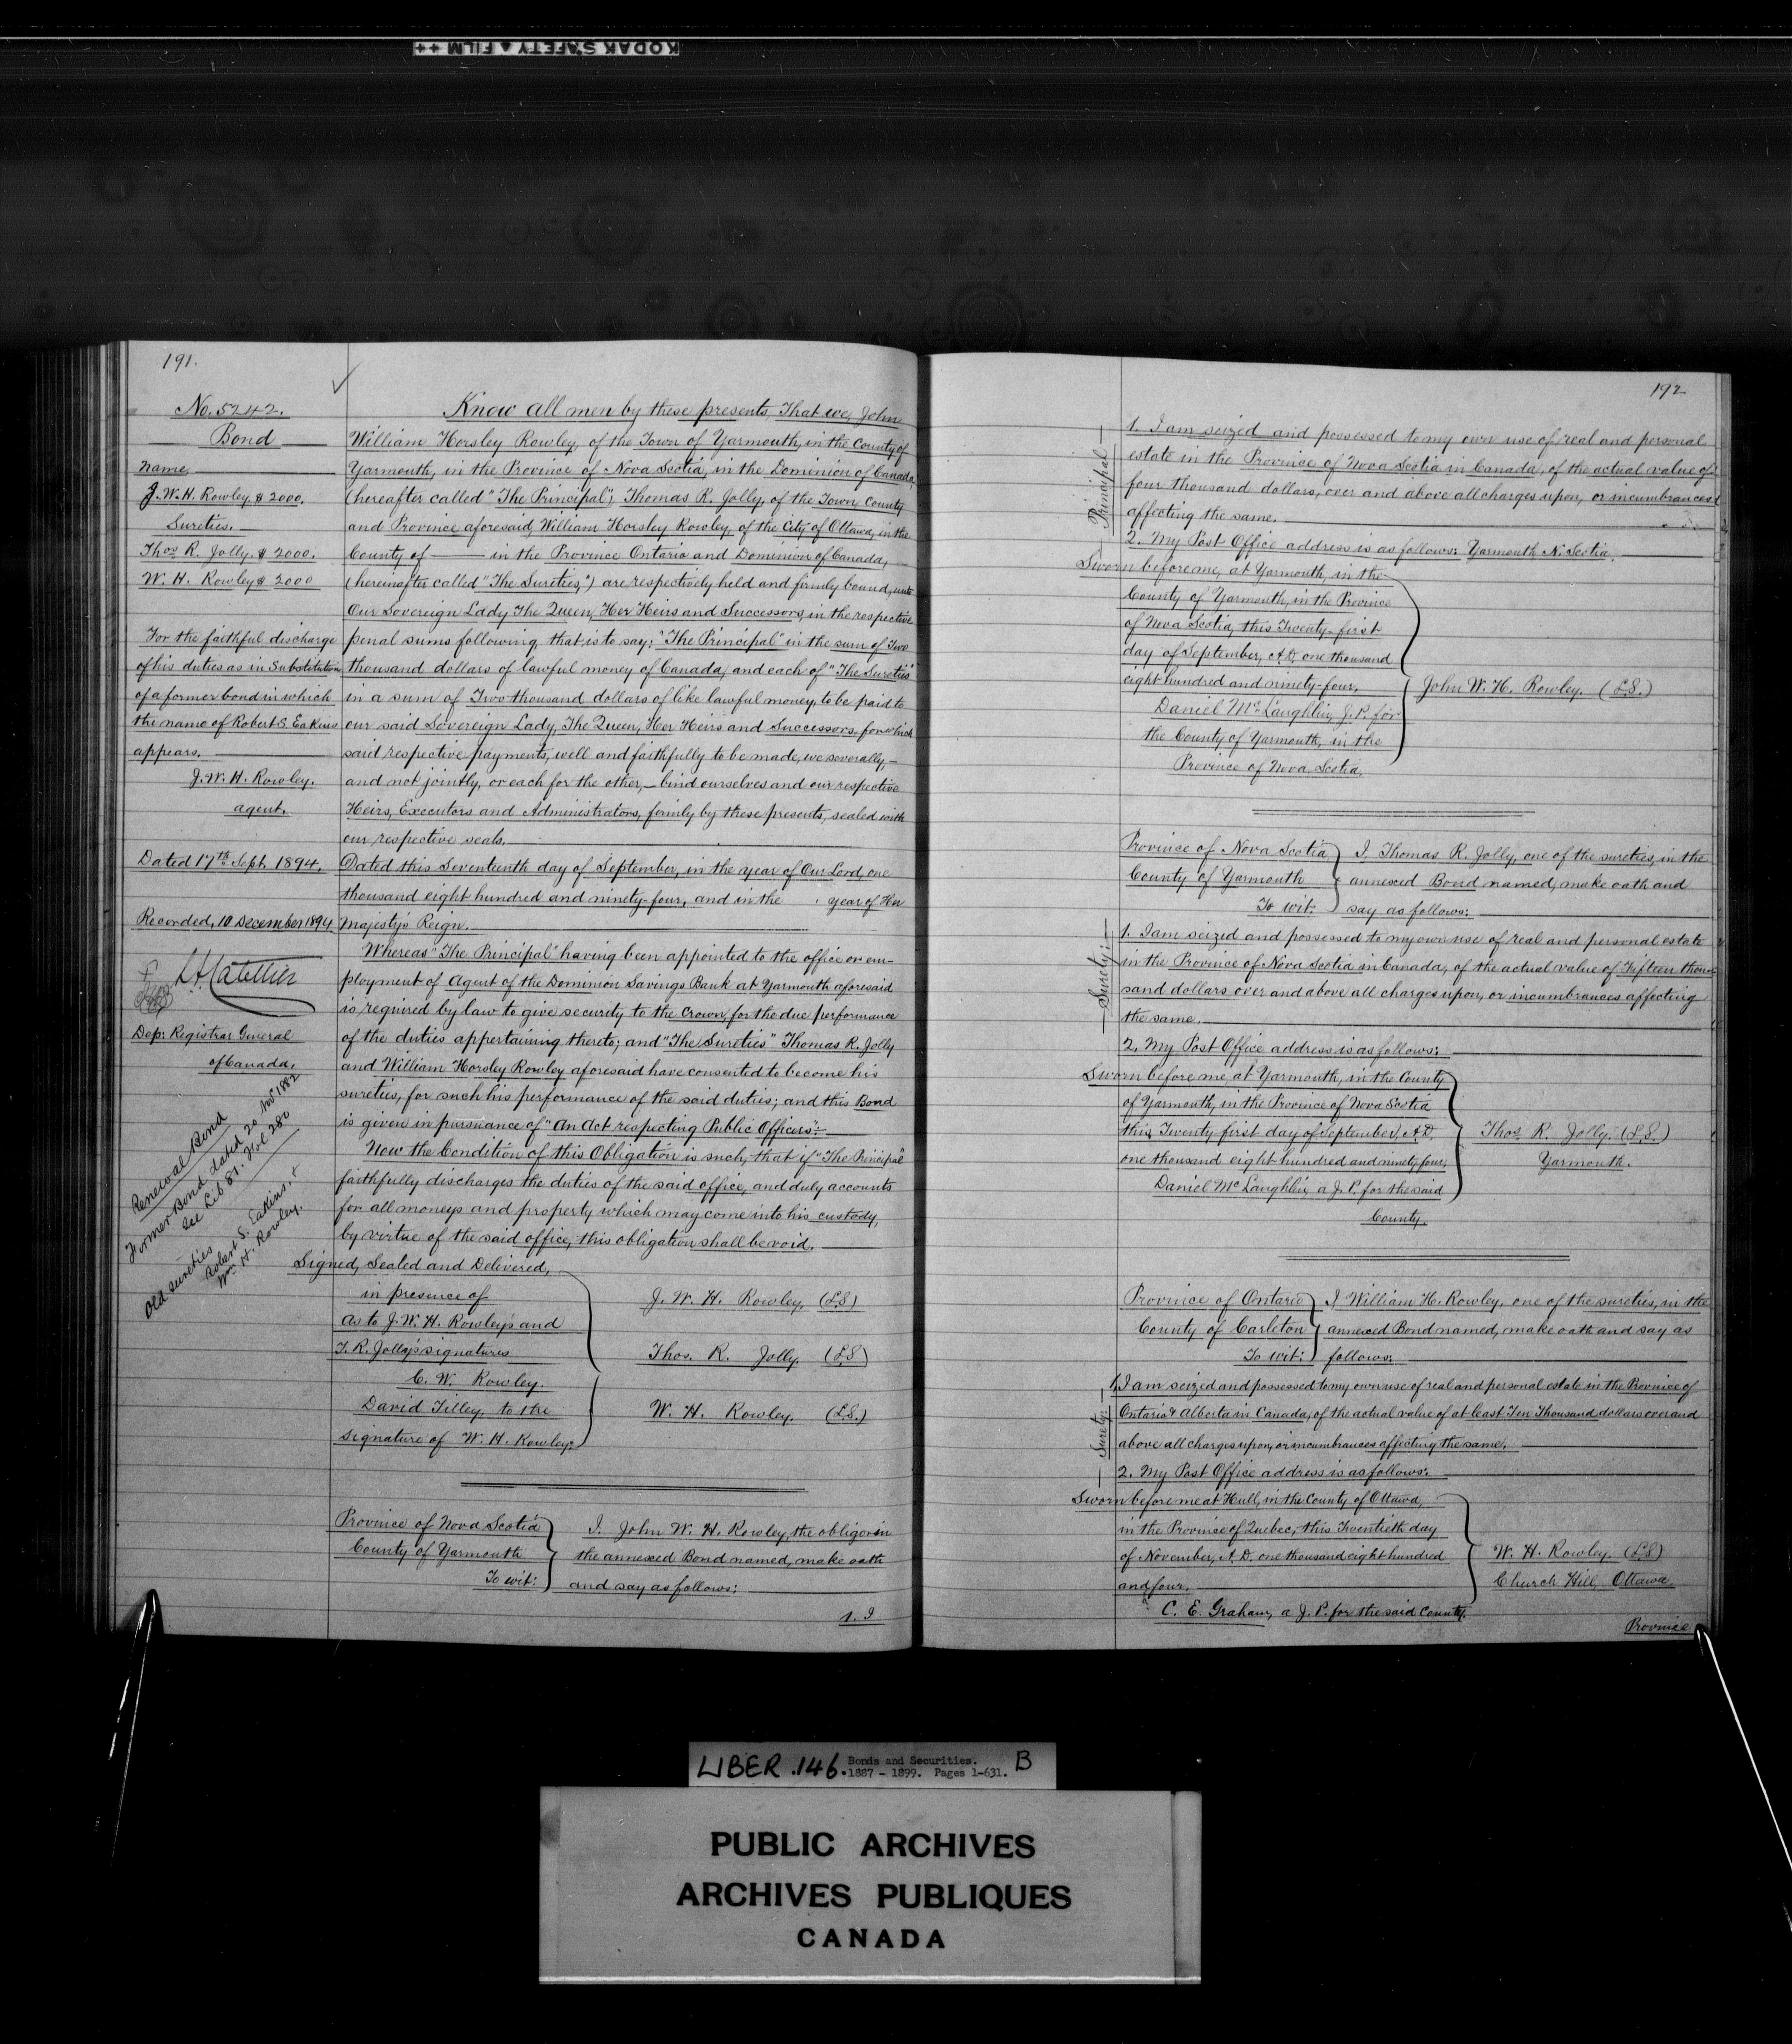 KODAK SAFETY FILM ++
191.
No. 5242.
Bond
Name
J. W. H. Rowley, $ 2000.
Sureties.
Thos R. Jolly. $ 2000.
W. H. Rowley $ 2000
For the faithful discharge
of his duties as in Substitution
of a former bond in which
the name of Robert S. Eakins
appears.
J. W. H. Rowley.
agent.
Dated 17th Sept. 1894.
Recorded, 10 December 1894
Dep: Registrar General
of Canada.
Renewal Bond
Former Bond dated 20 Nov 1882
See Lib 81. Fol 280
Old sureties
Robert S. Eakins, &
Wm H. Rowley.
Know all men by these presents, That we, John
William Horsley Rowley, of the Town of Yarmouth, in the County of
Yarmouth, in the Province of Nova Scotia, in the Dominion of Canada,
(hereafter called "The Principal"), Thomas R. Jolly, of the Town, County
and Province aforesaid, William Horsley Rowley, of the City of Ottawa, in the
County of —— in the Province Ontario and Dominion of Canada,
(hereinafter called "The Sureties,") are respectively held and firmly bound, unto
Our Sovereign Lady The Queen, Her Heirs and Successors, in the respective
penal sums following, that is to say: "The Principal" in the sum of Two
thousand dollars of lawful money of Canada, and each of "The Sureties"
in a sum of Two thousand dollars of like lawful money, to be paid to
our said Sovereign Lady, The Queen, Her Heirs and Successors, for which
said respective payments, well and faithfully to be made, we severally,—
and not jointly, or each for the other,— bind ourselves and our respective
Heirs, Executors and Administrators, firmly by these presents, sealed with
our respective seals.
Dated this Seventeenth day of September, in the year of Our Lord, one
thousand eight hundred and ninety-four, and in the year of Her
Majesty's Reign.
Whereas "The Principal" having been appointed to the office or em-
ployment of Agent of the Dominion Savings Bank at Yarmouth aforesaid
is required by law to give security to the Crown, for the due performance
of the duties appertaining thereto; and "The Sureties" Thomas R. Jolly
and William Horsley Rowley aforesaid have consented to become his
sureties, for such his performance of the said duties; and this Bond
is given in pursuance of "An Act respecting Public Officers":
Now the Condition of this Obligation is such, that if "The Principal"
faithfully discharges the duties of the said office, and duly accounts
for all moneys and property which may come into his custody,
by virtue of the said office, this obligation shall be void.
Signed, Sealed and Delivered,
in presence of
As to J. W. H. Rowley's and
T. R. Jolly's signatures
C. W. Rowley.
David Tilley, to the
signature of W. H. Rowley.
J. W. H. Rowley. (LS)
Thos. R. Jolly. (LS)
W. H. Rowley. (LS.)
Province of Nova Scotia
County of Yarmouth
To wit:
I, John W. H. Rowley, the obligor in
the annexed Bond named, make oath
and say as follows:
1. I
192
Principal
1. I am seized and possessed to my own use of real and personal
estate in the Province of Nova Scotia in Canada, of the actual value of
four thousand dollars, over and above all charges upon, or incumbrances
affecting the same.
2. My Post Office address is as follows: Yarmouth N. Scotia.
Sworn before me, at Yarmouth, in the
County of Yarmouth, in the Province
of Nova Scotia, this Twenty-first
day of September, A.D. one thousand
eight hundred and ninety-four.
Daniel McLaughlin, J. P. for
the County of Yarmouth, in the
Province of Nova Scotia.
John W. H. Rowley. (LS.)
Province of Nova Scotia
County of Yarmouth
To wit:
I, Thomas R. Jolly, one of the sureties, in the
annexed Bond named, make oath and
say as follows:
Surety:
1. I am seized and possessed to my own use of real and personal estate
in the Province of Nova Scotia in Canada, of the actual value of Fifteen thou-
sand dollars over and above all charges upon, or incumbrances affecting
the same.
2. My Post Office address is as follows:
Sworn before me, at Yarmouth, in the County
of Yarmouth, in the Province of Nova Scotia
this Twenty first day of September, A.D.
one thousand eight hundred and ninety four,
Daniel McLaughlin, a J. P. for the said
County.
Thos. R. Jolly. (LS.)
Yarmouth.
Province of Ontario
County of Carleton
To wit:
I, William H. Rowley, one of the sureties, in the
annexed Bond named, make oath and say as
follows:
Surety.
1. I am seized and possessed to my own use of real and personal estate in the Province of
Ontario & Alberta in Canada, of the actual value of at least Ten Thousand dollars over and
above all charges upon, or incumbrances affecting the same.
2. My Post Office address is as follows:
Sworn before me at Hull, in the County of Ottawa,
in the Province of Quebec, this Twentieth day
of November, A. D. one thousand eight hundred
and four.
C. E. Graham, a J. P. for the said County.
W. H. Rowley. (LS)
Church Hill, Ottawa.
Province
LIBER .146. Bonds and Securities. B
1887 - 1899. Pages 1-631.
PUBLIC ARCHIVES
ARCHIVES PUBLIQUES
CANADA